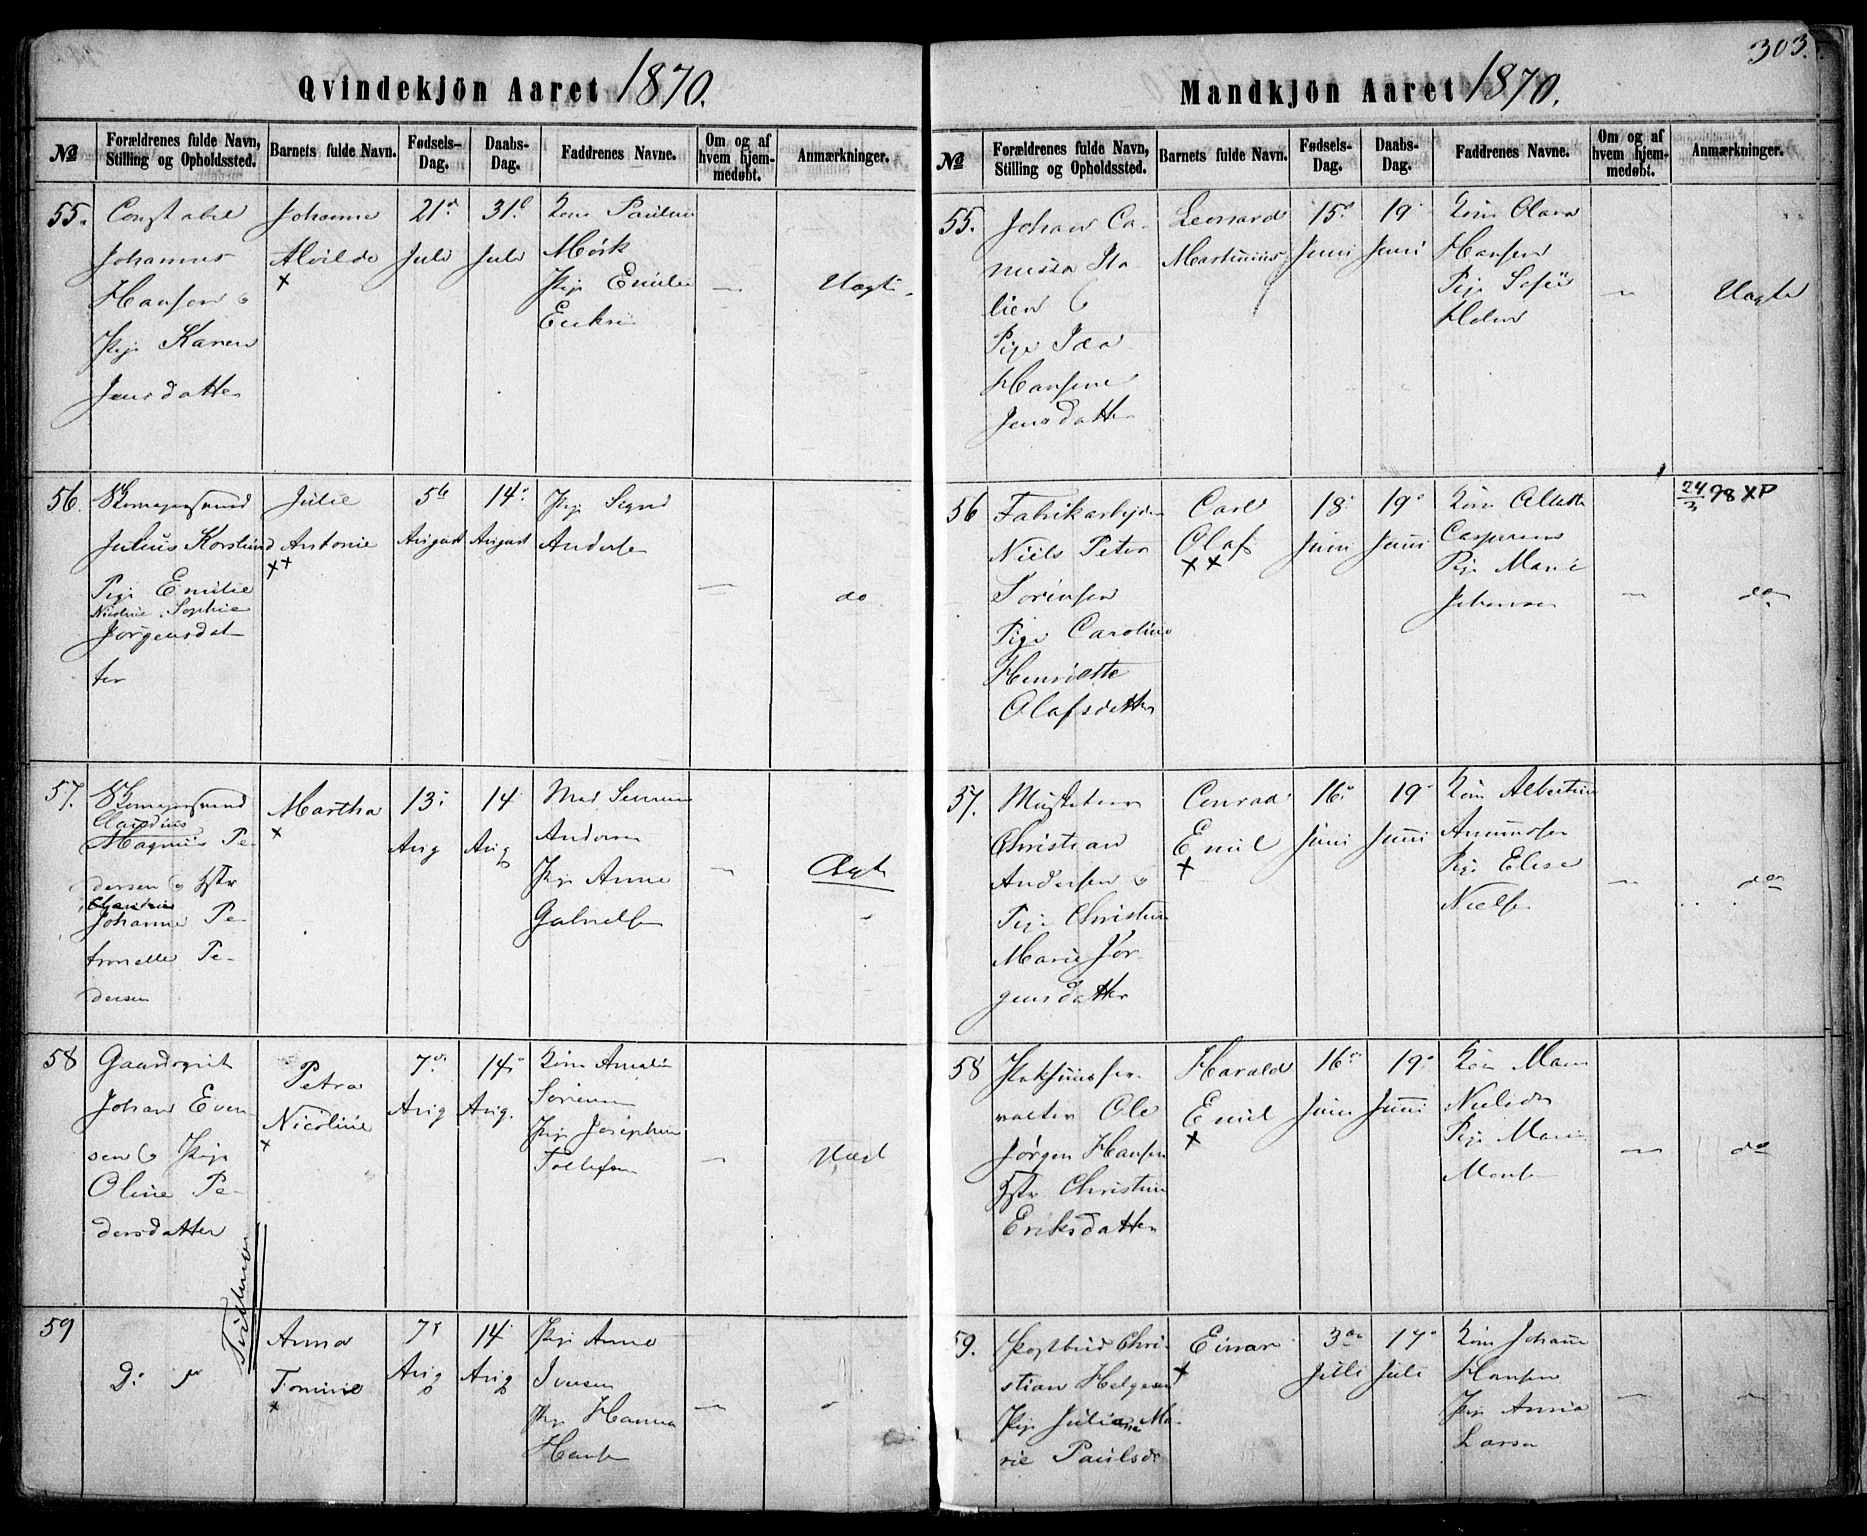 303.
Qvindekjön Aaret 1870.
No
Forældrenes fulde Navn,
Stilling og Opholdssted.
Barnets fulde Navn.
Fødsels-
Dag.
Daabs-
Dag.
Faddrenes Navne.
Om og af
hvem hjem-
medøbt.
Anmærkninger.
55.
Constabel
Johannes
Hansen &
Pige Karen
Jensdatter
Johanne
Alvilde
×
21de
Juli
31te
Juli
Kone Pauline
Mørk
Pige Emilie
Eriksen
—
Uægte
56.
Julius Korslund
Pige Emilie
Nicoline Sophie
Jörgensdat
ter
Julie
Antonie
××
5te
August
14de
August
Pige Sigrid
Andersen
—
do
57.
Claudius
Magnus Pe-
dersen & Hstr
Johanne Pe-
tronelle Pe-
dersen
Martha
×
13de
Aug
14
Aug
Andersen
Pige Anne
Gabrielsen
—
Ægte
58
Johan Even-
sen & Pige
Oline Pe-
dersdatter
Petra
Nicoline
×
7de
Aug
14de
Aug.
Kone Amalie
Sörensen
Pige Josephine
Tollefsen
—
Uægt
Tvillinger
59
Do
Anna
Tomine
×
7de
Aug
14
Aug
Pige Anne
Iversen
Pige Hanna
Hansen
—
Mandkjön Aaret 1870.
No
Forældrenes fulde Navn,
Stilling og Opholdssted.
Barnets fulde Navn.
Fødsels-
Dag.
Daabs-
Dag.
Faddrenes Navne.
Om og af
hvem hjem-
medøbt.
Anmærkninger.
55.
Johan Ca-
nussa Ita-
lien &
Pige Ida
Hansine
Jensdatter
Leonard
Martinius
15de
Juni
19
Juni
Kone Olava
Hansen
Pige Sofie
Holm
—
Uægte
56
Fabrikarbejder
Niels Peter
Sörensen
Pige Caroline
Henriette
Olafsdatter
Carl
Olaf
××
18de
Juni
19de
Juni
Kone
Caspersen
Pige Marie
Johansen
—
24/3 98 XP
do
57.
Christian
Andersen &
Pige Christine
Marie Jör-
gensdatter
Conrad
Emil
×
16de
Juni
19de
Juni
Kone Albertine
Amundsen
Pige Elise
Nielsen
—
do
58
valter Ole
Jørgen Hansen
Hstr Christine
Eriksdatter
Harald
Emil
×
16de
Juni
19de
Juni
Kone Maren
Nielsen
Pige Marie
—
do
59.
Postbud Chri-
stian Helgesen
Pige Juliane Ma-
rie Paulsdr
Einar
×
3die
Juli
17de
Juli
Kone Johanne
Hansen
Pige Anna
Larsen
—